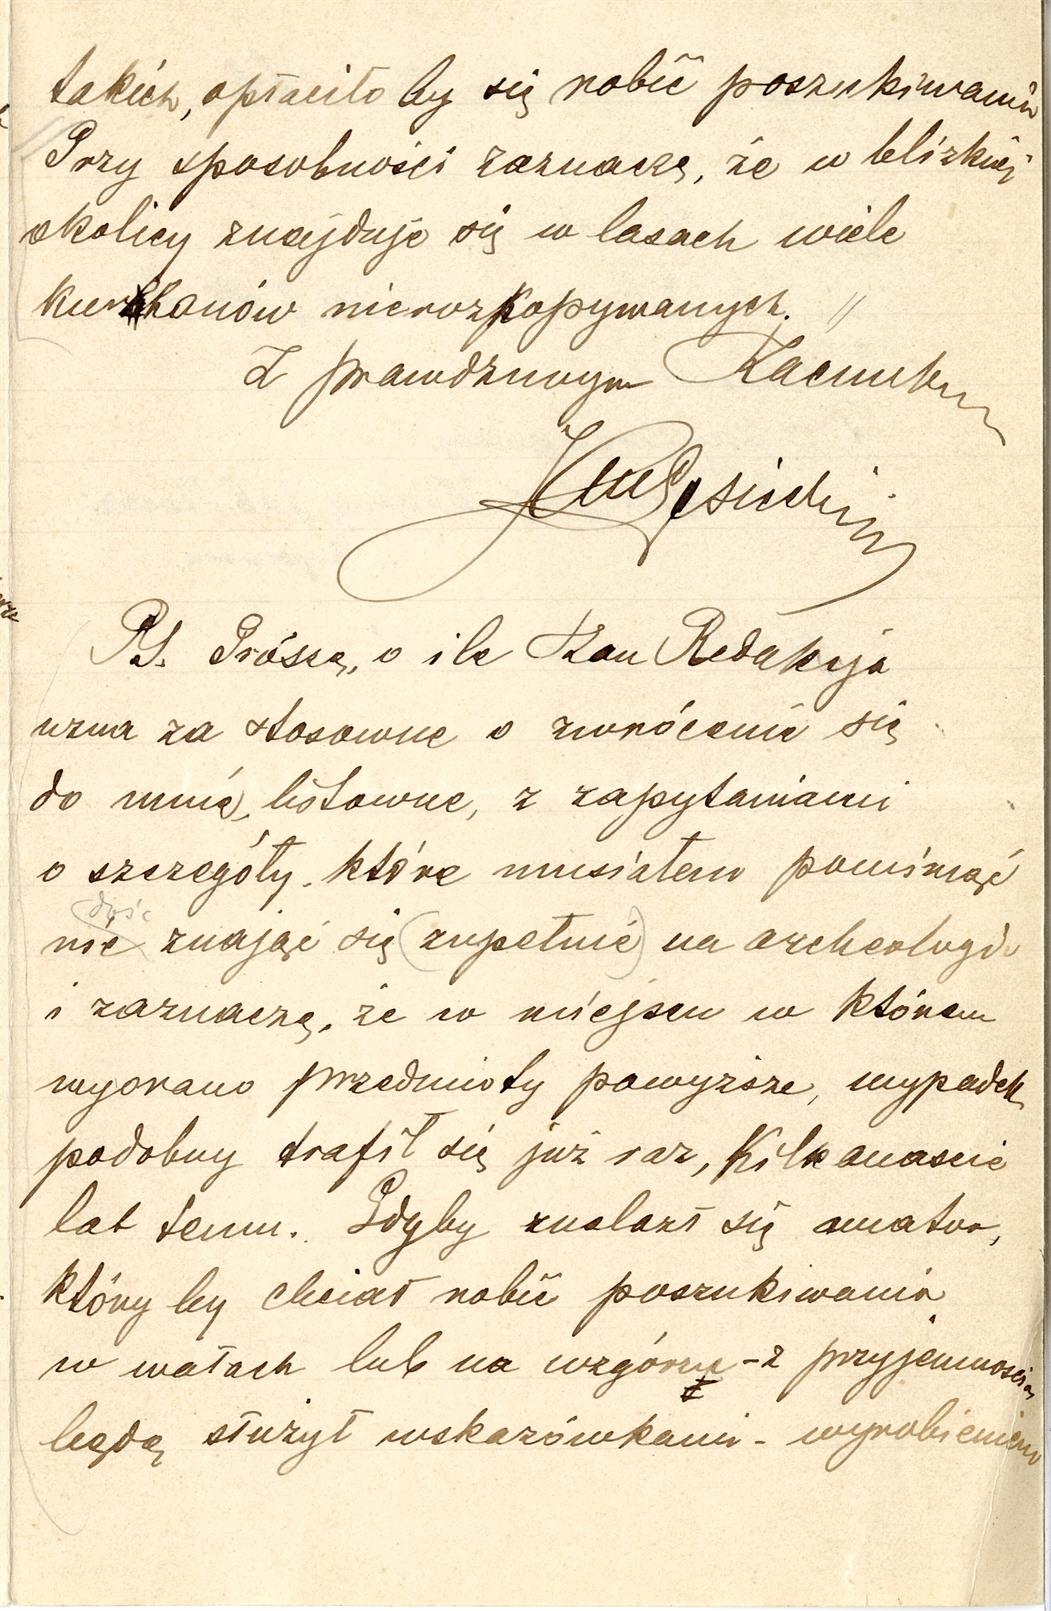 takich, opłaciło by się robić poszukiwania
Przy sposobności zaznaczę, że w blizkiej
okolicy znajduje się w lasach wiele
kurhanów nierozkopywanych. //
Z prawdziwym szacunkiem

PS. Proszę, o ile Szan Redakcja
uzna za stosowne o zwrócenie się
do mnie, listowne, z zapytaniami
o szczegóły, które musiałem pominąć
dość
nie znając się (zupełnie) na archeologii
i zaznaczę, że w miejscu w którem
wyorano przedmioty powyższe, wypadek
podobny trafił się już raz, kilkanaście
lat temu. Gdyby znalazł się amator,
który by chciał robić poszukiwania
w wałach lub na wzgórzu - z przyjemnością
będę służył wskazówkami - wyrobieniem